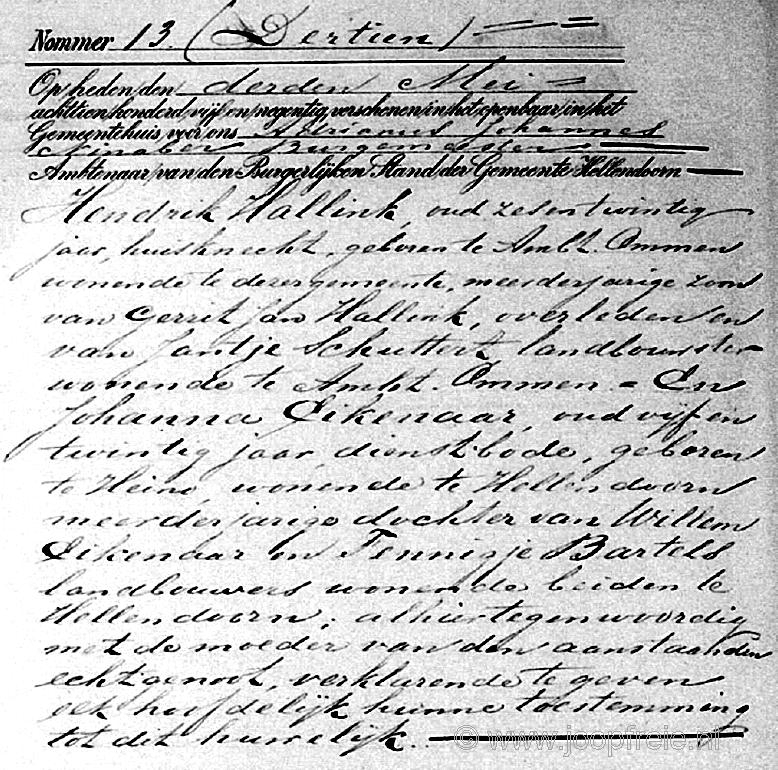 Nommer 13. (Dertien)
Op heden den derden Mei
achttien honderd vijf en negentig, verschenen in het openbaar, in het
Gemeentehuis, voor ons Adrianus Johannes
Burgemeester
Ambtenaar van den Burgerlijken Stand der Gemeente Hellendoorn
Hendrik Hallink, oud zesentwintig
jaar, huisknecht, geboren te Ambt. Ommen
wonende te dezer gemeente, meerderjarige zoon
van Gerrit Jan Hallink, overleden en
van Jantje Schuttert, landbouwster
wonende te Ambt. Ommen. = En
Johanna Eikenaar, oud vijf en
twintig jaar, dienstbode, geboren
te Heino, wonende te Hellendoorn
meerderjarige dochter van Willem
Eikenaar en Tennigje Bartels
landbouwers wonende beiden te
Hellendoorn; alhier tegenwoordig
met de moeder van den aanstaanden
echtgenoot, verklarende te geven
elk hoofdelijk hunne toestemming
tot dit huwelijk.
© www.joopfreie.nl